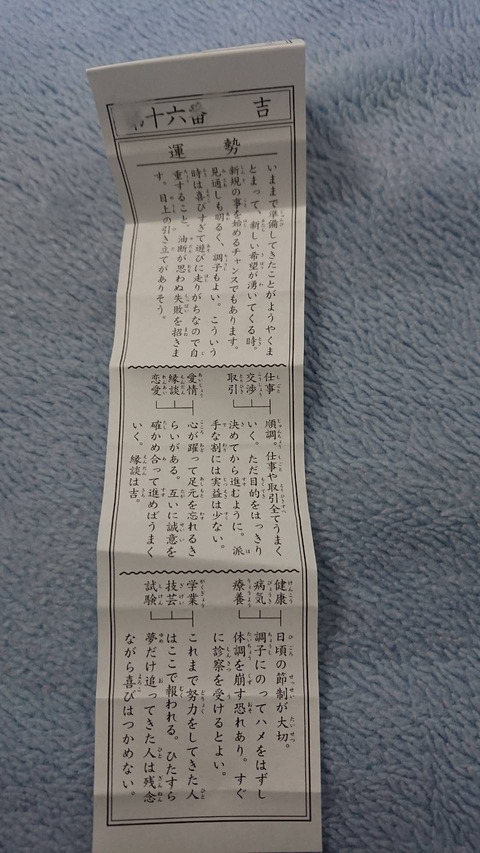 十六番 吉
運勢
いままで準備してきたことがようやくま
とまって、新しい希望が湧いてくる時。
新規の事を始めるチャンスでもあります。
見通しも明るく、調子もよい。こういう
時は喜びすぎて遊びに走りがちなので自
重すること。油断が思わぬ失敗を招きま
す。目上の引き立てがありそう。
仕事
交渉
取引
順調。仕事や取引全てうまく
いく。ただ目的をはっきり
決めてから進むように。派
手な割には実益は少ない。
愛情
縁談
恋愛
心が躍って足元を忘れるき
らいがある。互いに誠意を
確かめ合って進めばうまく
いく。縁談は吉。
健康
病気
療養
日頃の節制が大切。
調子にのってハメをはずし
体調を崩す恐れあり。すぐ
に診察を受けるとよい。
学業
技芸
試験
これまで努力をしてきた人
はここで報われる。ひたすら
夢だけ追ってきた人は残念
ながら喜びはつかめない。